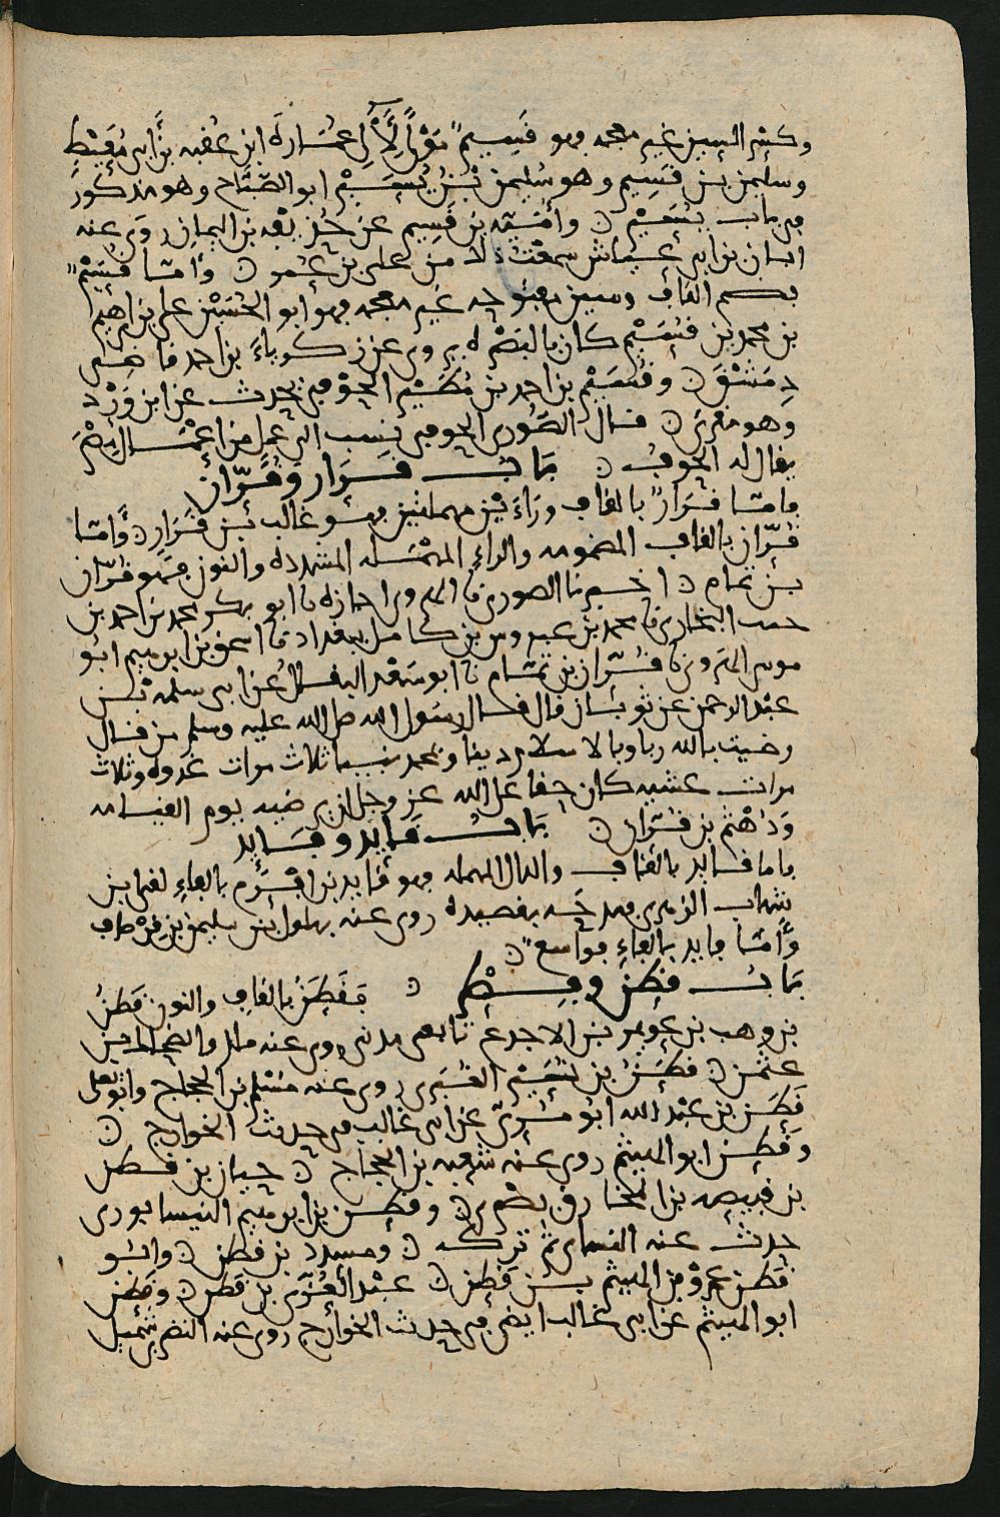 وكسر السين غير معجمه فهو قَسِيم مَوْلًى لِآل عُمَارة ابن عُقبه بن أبي مُعَيْطٍ
وسليمن بن قَسِيم وهو سُليمن بْنُ يُسَيْر ابو الصَّبَّاح وهو مذكور
في باب يُسَيْر ن وأُمَيَّه بن قَسِيم عن حُذيفه بن اليمان روى عنه
ابان بن ابي عيّاش سمعت ذلك من على بن عُمر ن وأمّا قُسَيْم
بضم القاف وسين مفتوحه غير معجمه فهو ابو الحُسَيْن على بن ابرهيم
بن محمد بن قُسَيْم كان بالبَصْره يروى عن زكرياءَ بن احمد قاضى
دِمَشْقَ ن وقُسَيْم بن احمد بن مُطَيْر الحَوْفى يحدث عن ابن وَرْد
وهو مقرى ن قال الصُّورى الحوفى ينسب الى عمل من اعْمال مِصْرَ
يقال له الحوف ن باب قَرَار وقُرَّان
فامّا قَرَارٌ بالقاف ورَاءَيْن مهملتين فهو غالب بن قَرَارٍ ن وَامّا
قُرَّان بالقاف المضمومه والراء المهْمَله المشدده والنون فهو قرّان
بن تمام ن اخبرنا الصورى نا ابو بكر محمد بن احمد بن
محمد بن عبدوس بن كامل ببغداد نا اسحق بن ابرهيم ابو
موسى الهَروى نا قُرَّان بن تمّام نا ابو سَعْد البقال عن ابى سلمه بن
عبد الرحمن عن ثوبان قال قال رسول الله صلى الله عليه وسلم من قال
رضيت بالله ربا وبالاسلام دينا وبمحمد نبيا ثلاث مرات غدوه وثلاث
مرات عشيه كان حقا على الله عز وجل ان يرضيه يوم القيامه
وَدَهْثم بن قُرّان ن باب قايد وفايد
فاما قايد بالقاف والدال المهمله فهو قايد بن اقْرَم بالقاف لقى ابن
شهاب الزهرى ومدحه بقصيده روى عنه بهلول بن سليمن بن قِرْضاب
وَأمّا فايد بالفاءِ فواسع ن
باب قَطَن وفِطْر ن فقَطَنٌ بالقاف والنون قَطَنُ
بن وهب بن عويمر بن الاجدع تابعى مدنى روى عنه ملك والضحاك بن
عثمن ن قَطَنُ بن نُسَيْر الغُبَرى روى عنه مسْلم بن الحجاج وابو يعلى
قَطَن بن عبْد الله ابو مُرَىّ عن ابى غالب فى حديث الخوارج ن
وقطن ابو الهيثم روى عنه شعبه بن الحجاج ن حيان بن قطن
بن قبيصه بن المخارق بصْرى ن وقطن بن ابرهيم النيسابورى
حدث عنه النسائى ثم تركه ن ومسدد بن قطن ن وابو
قَطَن عمرُو بن الهيثم بن قَطن ن عبْد العزيز بن قَطَن ن وقطن
ابو الهيثم عن ابى غالب ايضا فى حديث الخوارج روى عنه النضر بن شميل